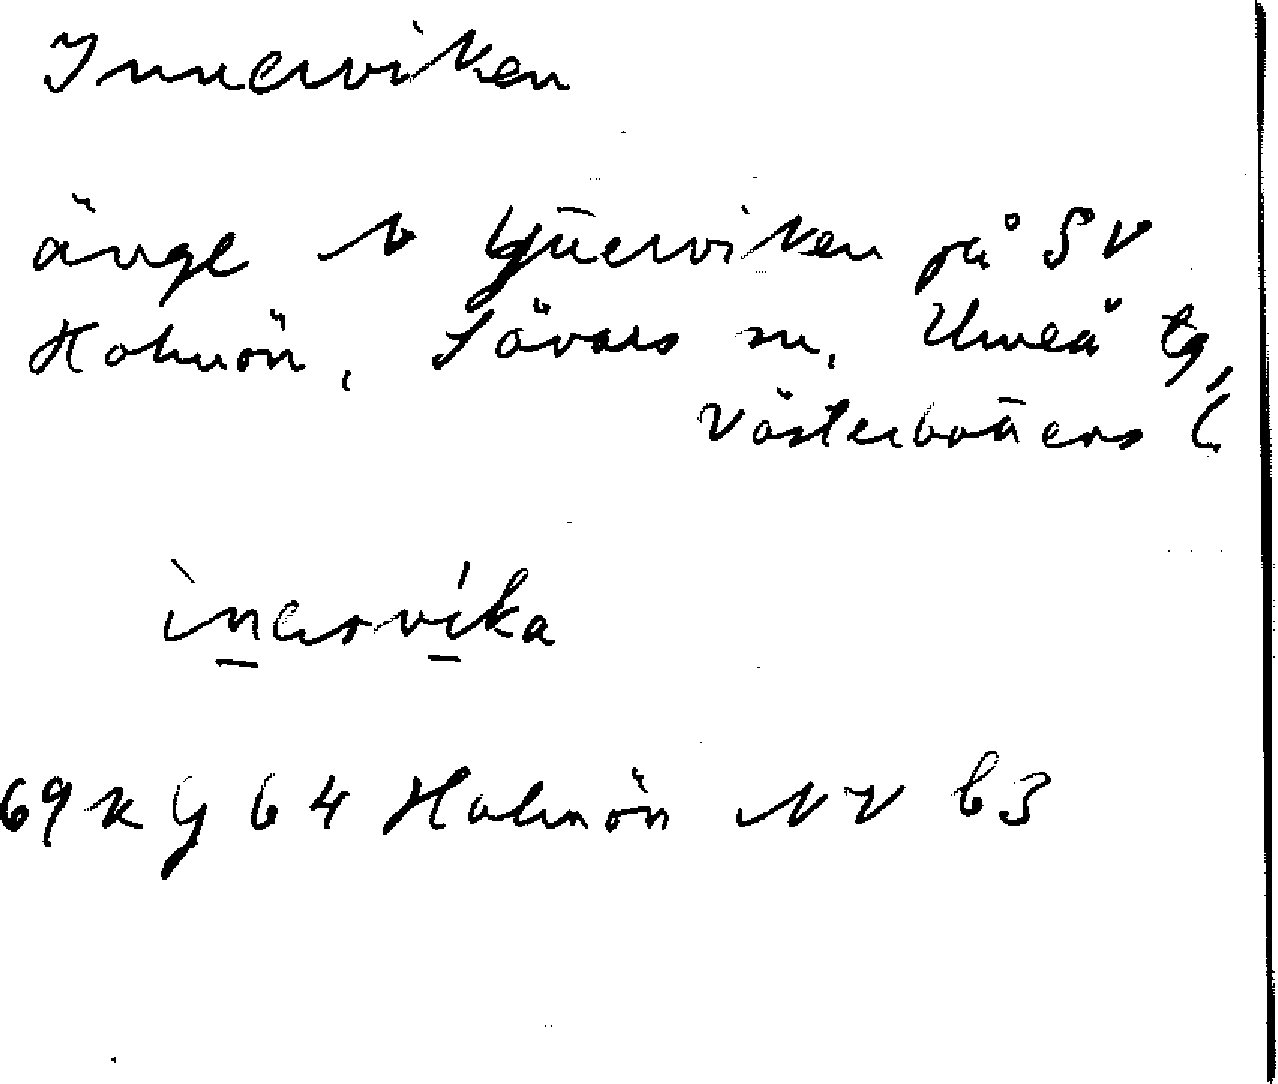 Innerviken
änge N Ytterviken på SV
Holmön, Sävars sn, Umeå tg,
Västerbottens l.
ìnɐrvíka
69 K Y 64 Holmön NV b3